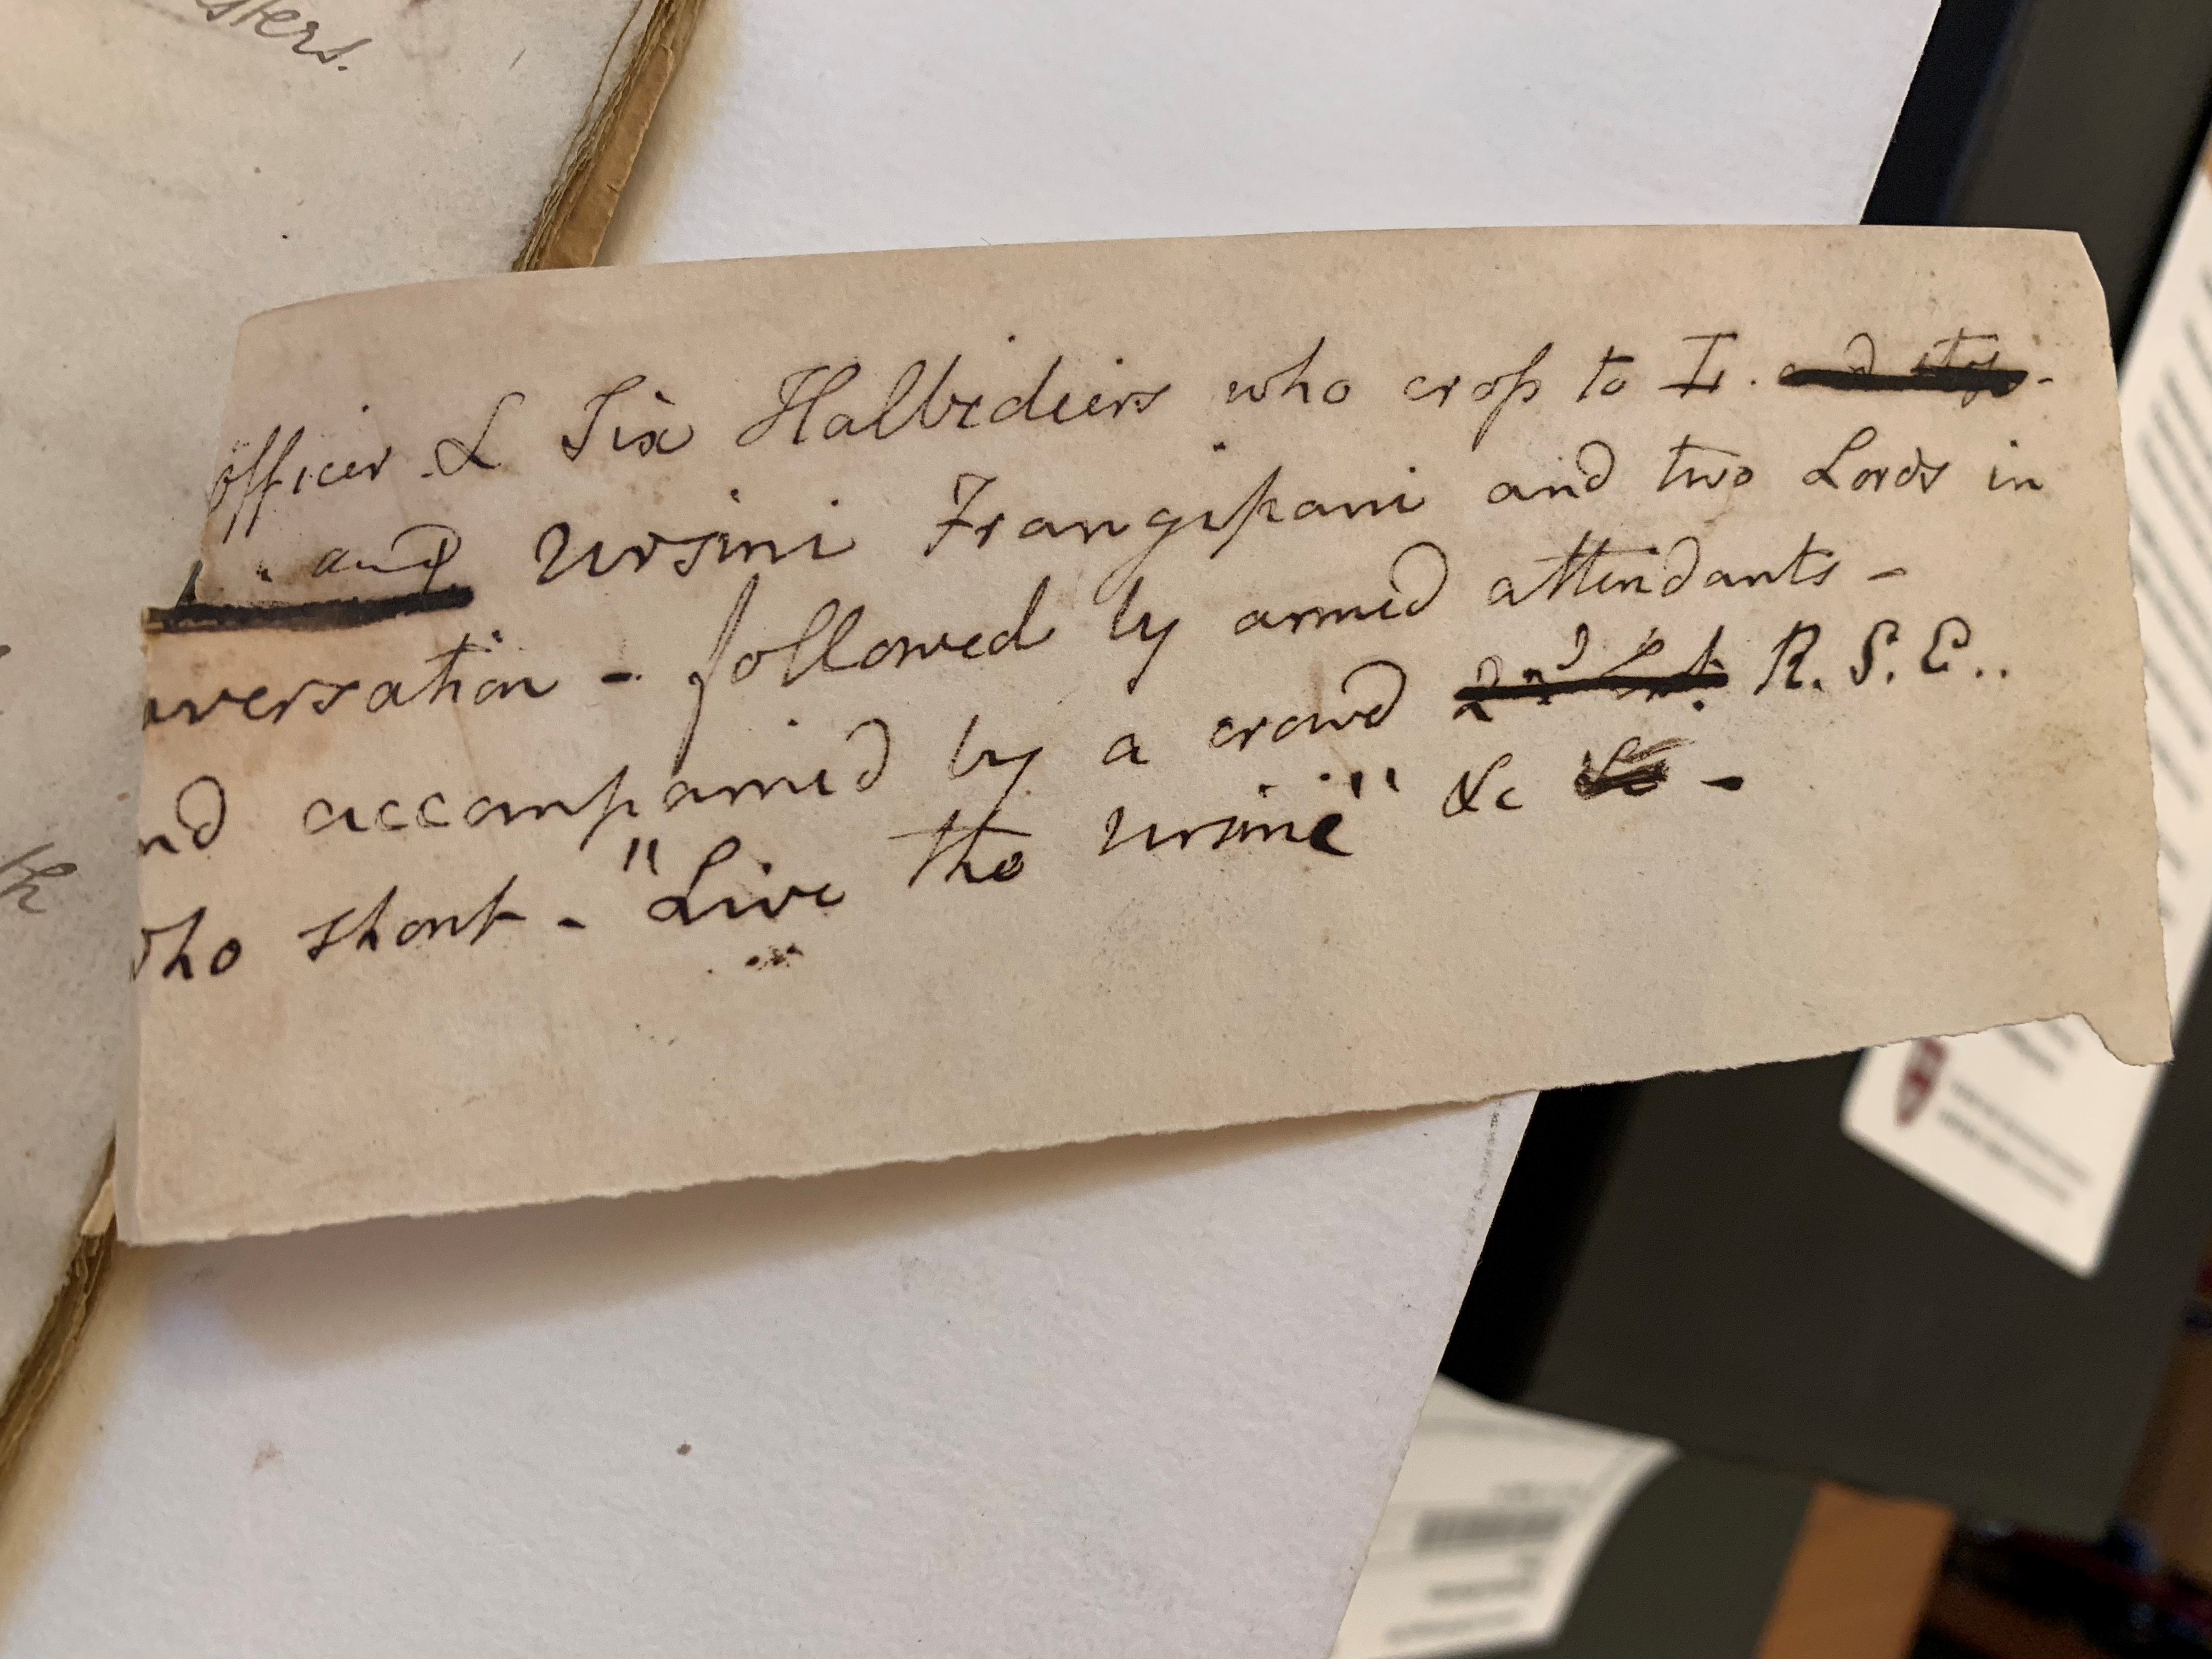 sters.
officer & Six Halbediers who cross to L. and stops -
and Ursini Frangipani and two Lords in
nversation - followed by armed attendants -
nd accompanied by a crowd 2nd Ent. R. S. E..
who shout - "Live the Ursini" &c &c -